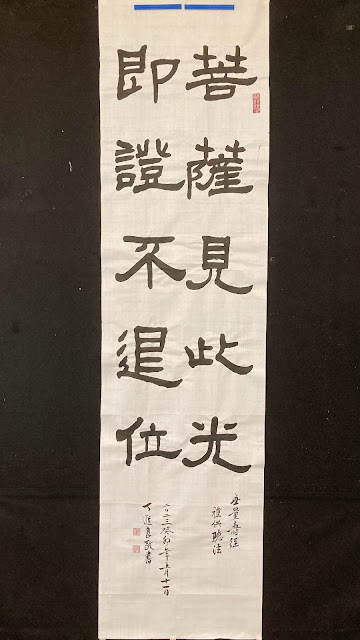 菩薩見此光
即證不退位
無量壽經
禮供聽法
二〇二三癸卯年十月十一日
丁進良敬書